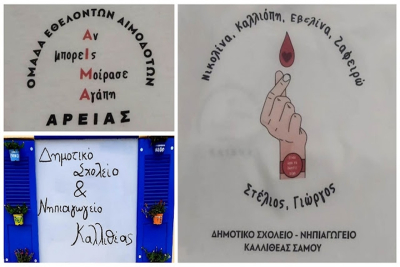 ΟΜΑΔΑ ΕΘΕΛΟΝΤΩΝ ΑΙΜΟΔΟΤΩΝ
Αν
μπορεις
Μοίρασε
Αγάπη
ΑΡΕΙΑΣ
Δημοτικό
Σχολείο
&
Νηπιαγωγείο
Καλλιθέας
Νικολίνα, Καλλιόπη, Εβελίνα, Ζαφειρώ
Στέλιος, Γιώργος
ΔΗΜΟΤΙΚΟ ΣΧΟΛΕΙΟ - ΝΗΠΙΑΓΩΓΕΙΟ
ΚΑΛΛΙΘΕΑΣ ΣΑΜΟΥ